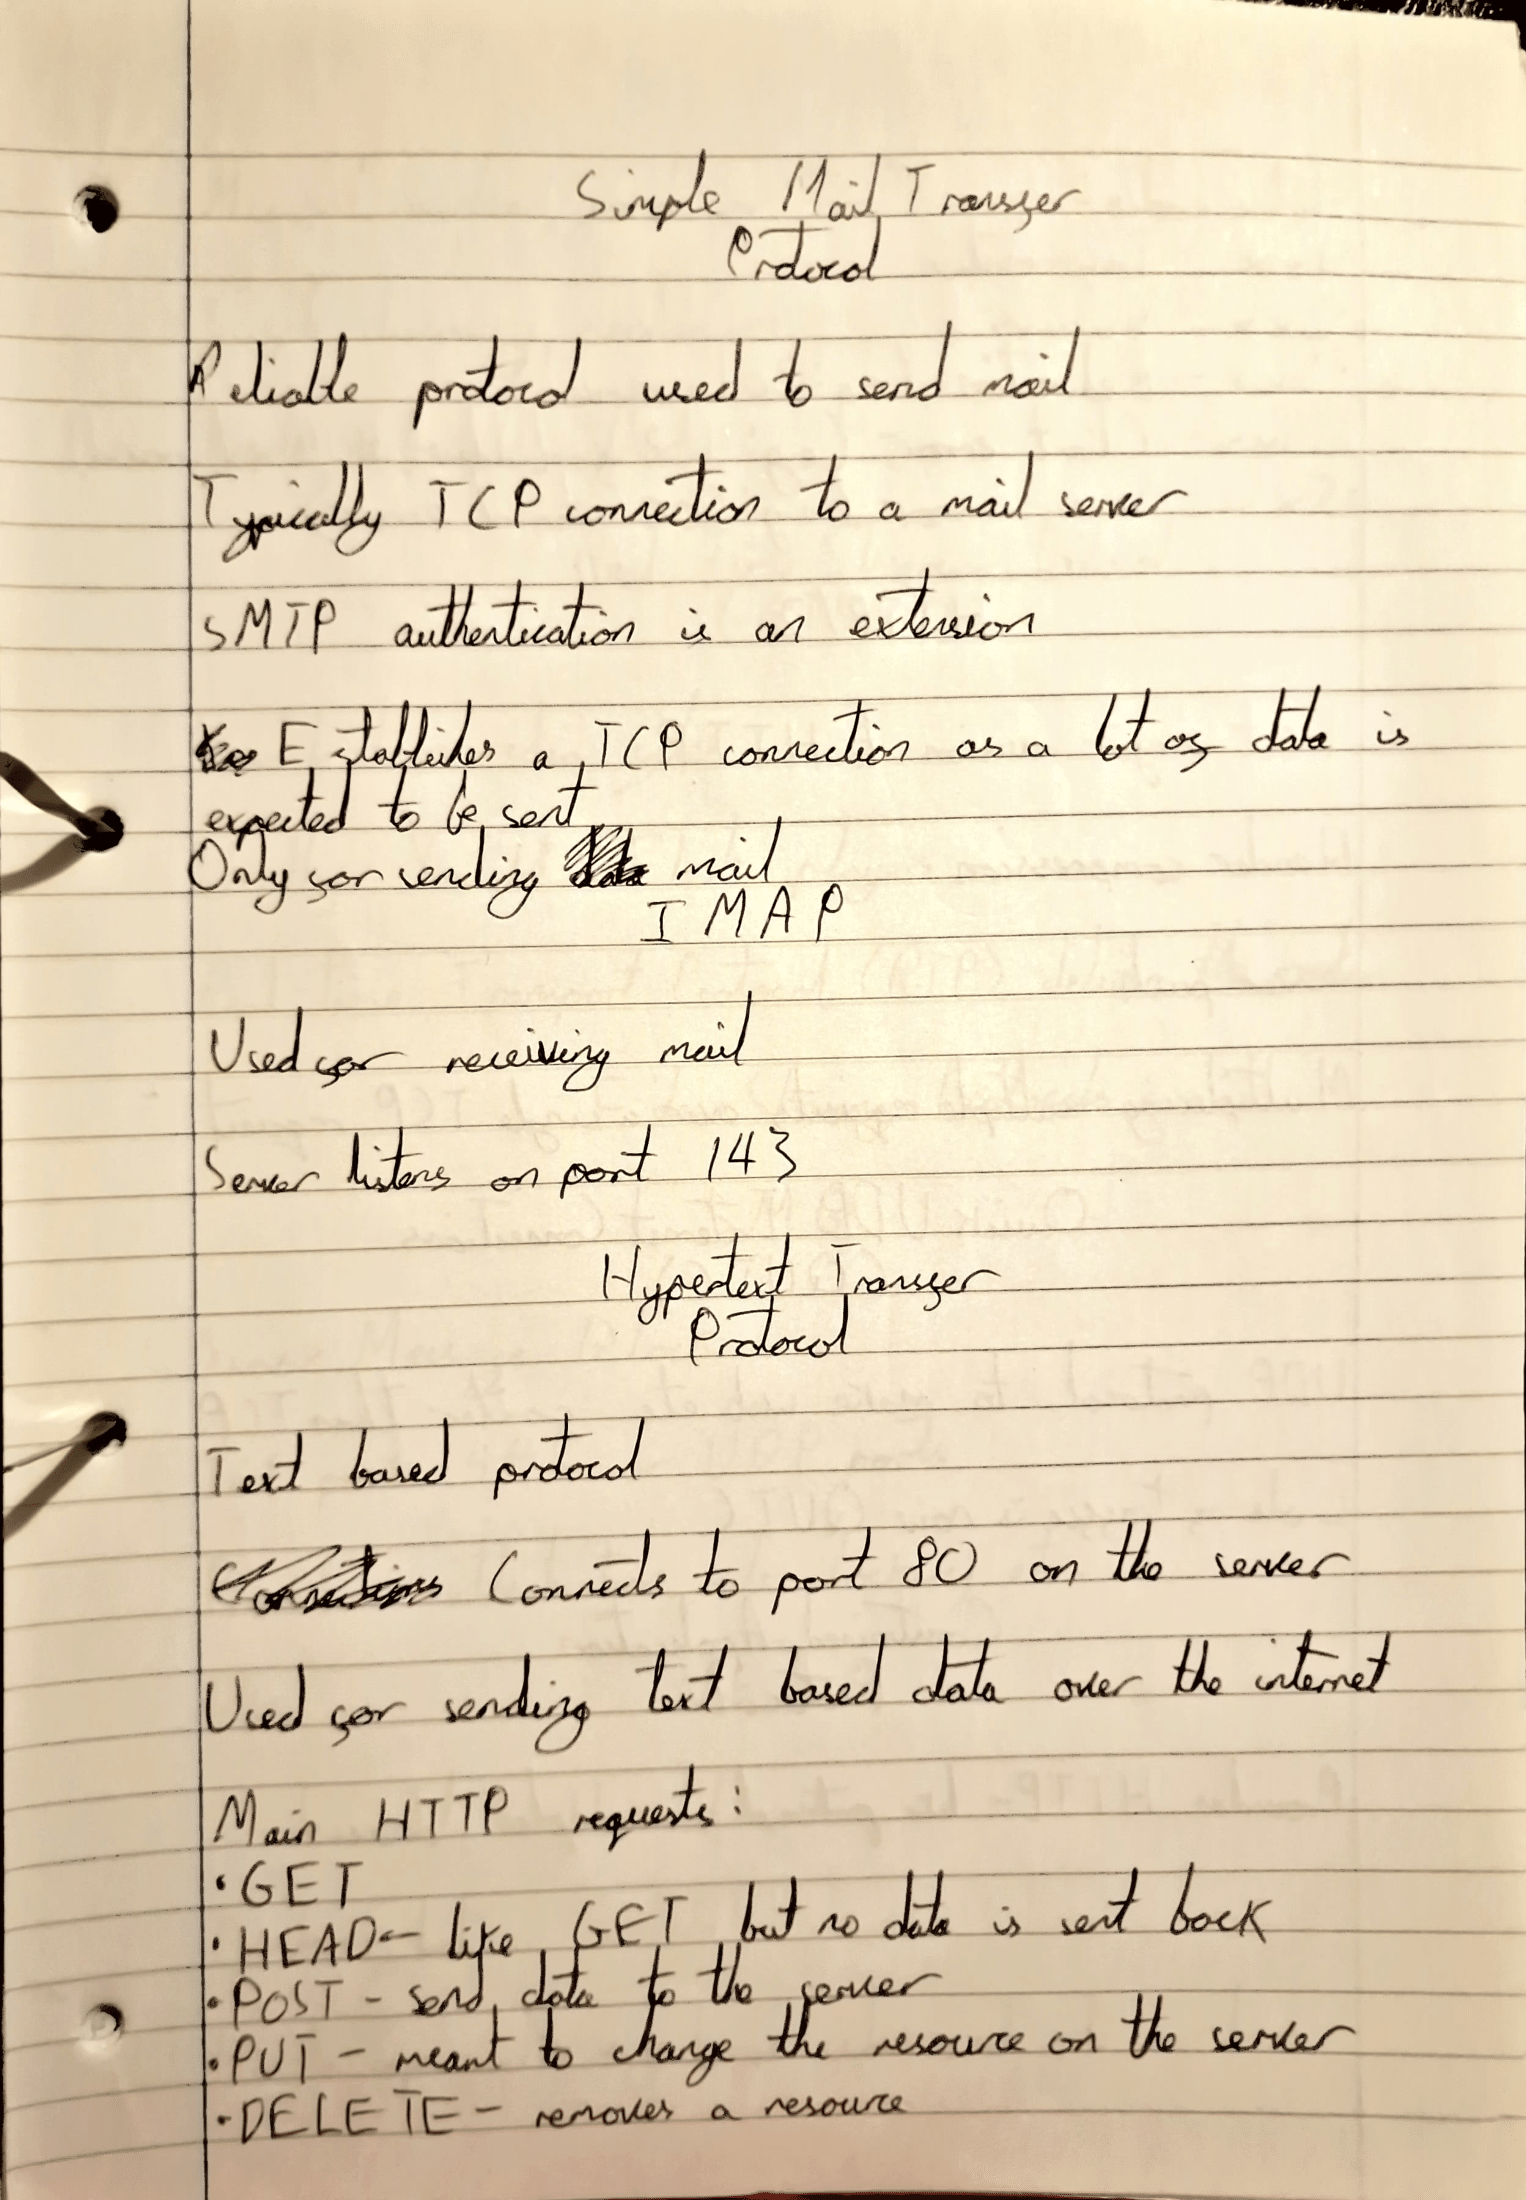 Simple Mail Transfer
Protocol
Reliable protocol used to send mail
Typically TCP connection to a mail server
SMTP authentication is an extension
Establishes a TCP connection as a lot of data is
expected to be sent
Only for sending mail
IMAP
Used for receiving mail
Server listens on port 143
Hypertext Transfer
Protocol
Text based protocol
Connects to port 80 on the server
Used for sending text based data over the internet
Main HTTP requests:
• GET
• HEAD - like GET but no data is sent back
• POST - send data to the server
• PUT - meant to change the resource on the server
• DELETE - removes a resource